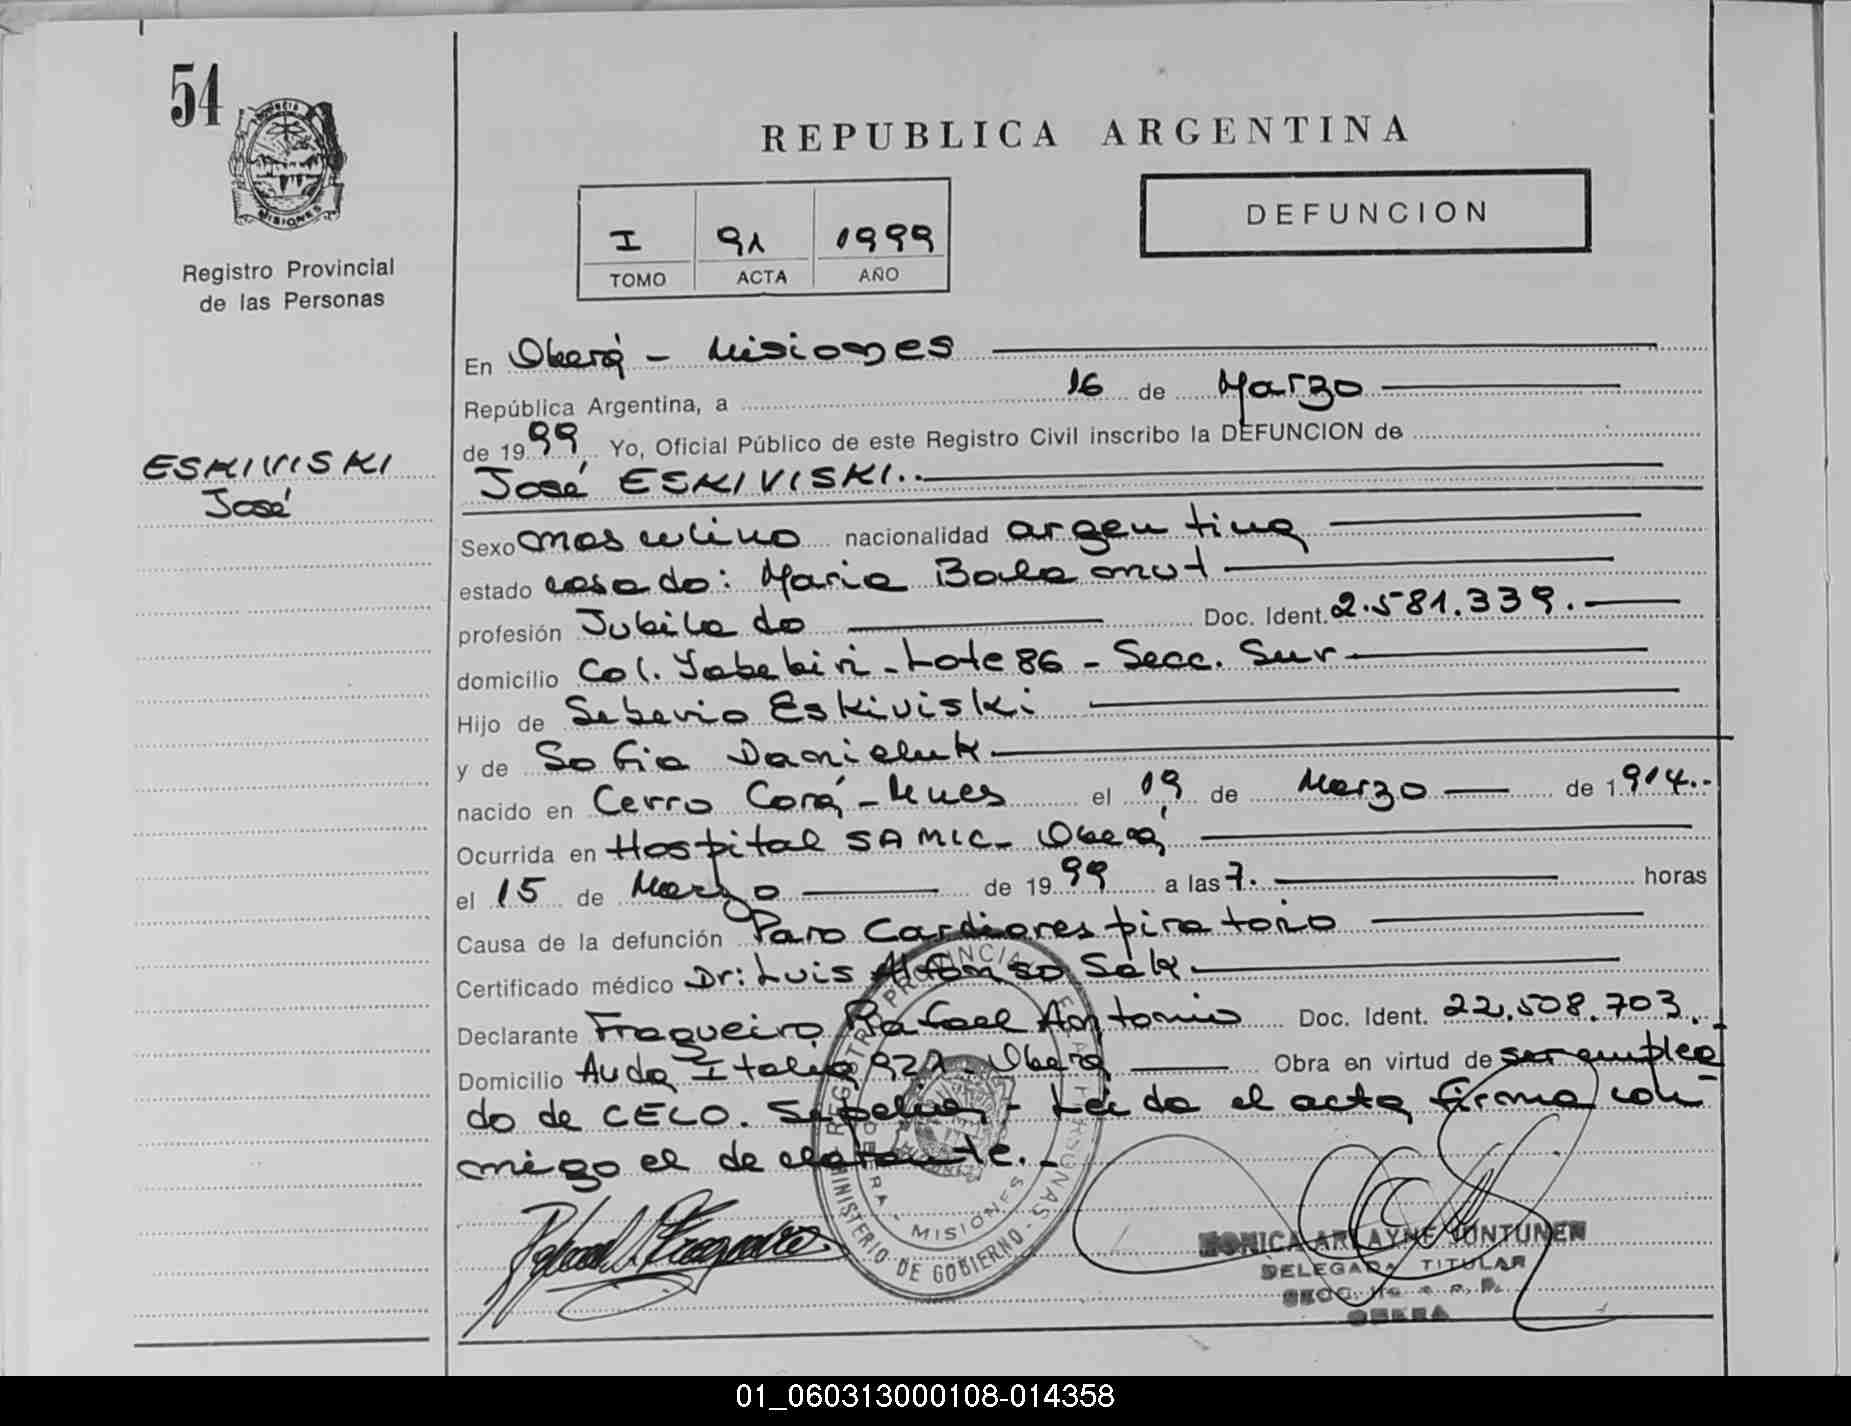 54
PROVINCIA
MISIONES
Registro Provincial
de las Personas
REPUBLICA ARGENTINA
I 91 1999
TOMO ACTA AÑO
DEFUNCION
ESKIVISKI
José
En Oberá - Misiones
República Argentina, a 16 de Marzo
de 1999 Yo, Oficial Público de este Registro Civil inscribo la DEFUNCION de
José ESKIVISKI..
Sexo masculino nacionalidad argentina
estado casado: Maria Balamut
profesión Jubilado Doc. Ident. 2.581.339.
domicilio Col. Yabebiri - Lote 86 - Secc. Sur
Hijo de Seberio Eskiviski
y de Sofia Danieluk
nacido en Cerro Corá - Mnes el 19 de Marzo de 1914..-
Ocurrida en Hospital SAMIC - Oberá
el 15 de Marzo de 1999 a las 7. horas
Causa de la defunción Paro Cardiorespiratorio
Certificado médico Dr: Luis Alfonso Sek.
Declarante Fragueiro Rafael Antonio Doc. Ident. 22.508.703.
Domicilio Avda Italia 921 - Oberá Obra en virtud de ser emplea
do de CELO. Sepelios - Leida el acta firma con-
migo el declarante.-
REGISTRO PROVINCIAL DE LAS PERSONAS
MISIONES
MINISTERIO DE GOBIERNO
MONICA ARLAYNE JUNTUNEN
DELEGADA TITULAR
OBERA
01_060313000108-014358